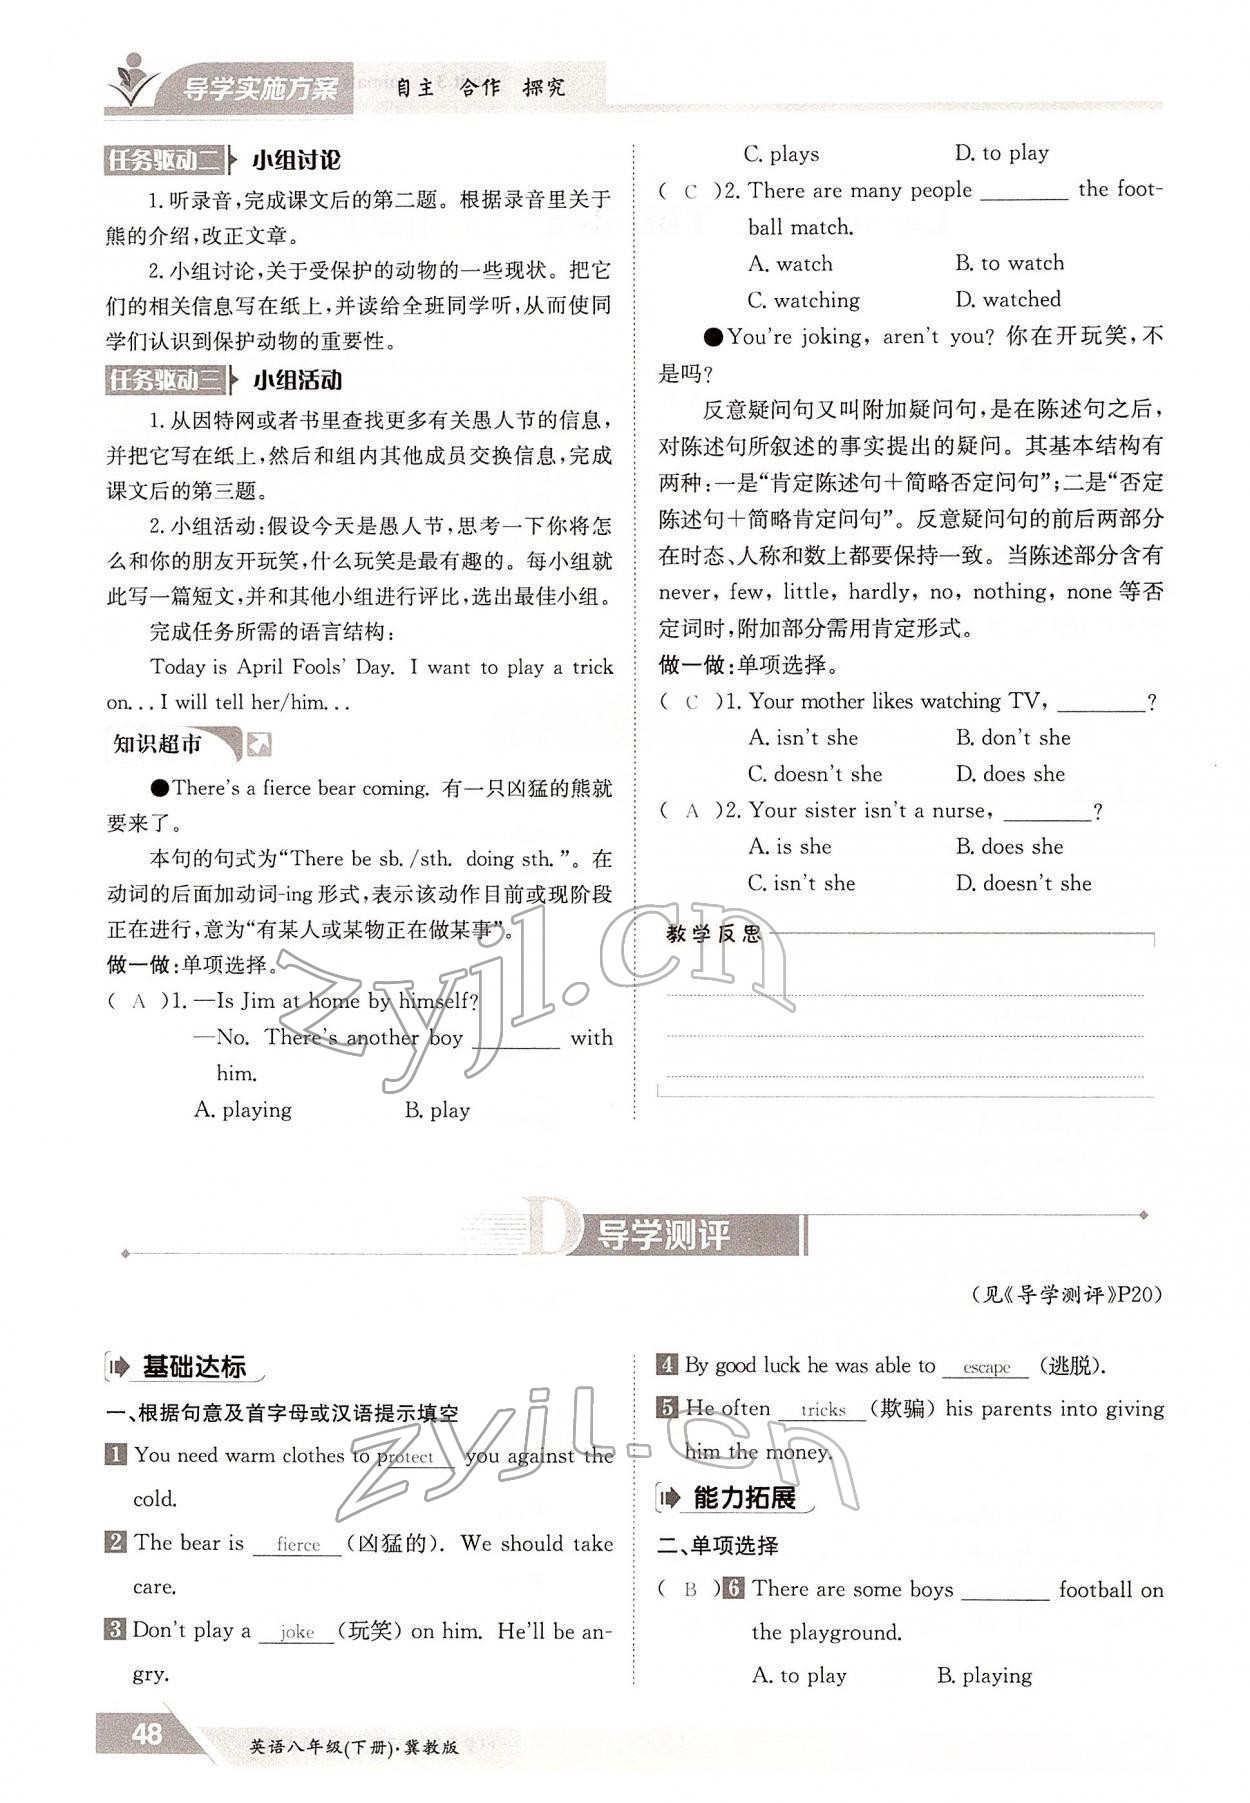 导学实施方案 自主 合作 探究
任务驱动二 小组讨论
1. 听录音,完成课文后的第二题。根据录音里关于
熊的介绍,改正文章。
2. 小组讨论,关于受保护的动物的一些现状。把它
们的相关信息写在纸上,并读给全班同学听,从而使同
学们认识到保护动物的重要性。
任务驱动三 小组活动
1. 从因特网或者书里查找更多有关愚人节的信息,
并把它写在纸上,然后和组内其他成员交换信息,完成
课文后的第三题。
2. 小组活动:假设今天是愚人节,思考一下你将怎
么和你的朋友开玩笑,什么玩笑是最有趣的。每小组就
此写一篇短文,并和其他小组进行评比,选出最佳小组。
完成任务所需的语言结构:
Today is April Fools' Day. I want to play a trick
on... I will tell her/him...
知识超市
●There's a fierce bear coming. 有一只凶猛的熊就
要来了。
本句的句式为“There be sb. /sth. doing sth. ”。在
动词的后面加动词-ing 形式,表示该动作目前或现阶段
正在进行,意为“有某人或某物正在做某事”。
做一做:单项选择。
( A )1. —Is Jim at home by himself?
—No. There's another boy ________ with
him.
A. playing B. play
C. plays D. to play
( C )2. There are many people ________ the foot-
ball match.
A. watch B. to watch
C. watching D. watched
●You're joking, aren't you? 你在开玩笑,不
是吗?
反意疑问句又叫附加疑问句,是在陈述句之后,
对陈述句所叙述的事实提出的疑问。其基本结构有
两种:一是“肯定陈述句+简略否定问句”;二是“否定
陈述句+简略肯定问句”。反意疑问句的前后两部分
在时态、人称和数上都要保持一致。当陈述部分含有
never, few, little, hardly, no, nothing, none 等否
定词时,附加部分需用肯定形式。
做一做:单项选择。
( C )1. Your mother likes watching TV, ________?
A. isn't she B. don't she
C. doesn't she D. does she
( A )2. Your sister isn't a nurse, ________?
A. is she B. does she
C. isn't she D. doesn't she
教学反思
D 导学测评
(见《导学测评》P20)
基础达标
一、根据句意及首字母或汉语提示填空
1 You need warm clothes to protect you against the
cold.
2 The bear is fierce (凶猛的). We should take
care.
3 Don't play a joke (玩笑) on him. He'll be an-
gry.
4 By good luck he was able to escape (逃脱).
5 He often tricks (欺骗) his parents into giving
him the money.
能力拓展
二、单项选择
( B )6 There are some boys ________ football on
the playground.
A. to play B. playing
48
英语八年级(下册)·冀教版
zyjl.cn
zyjl.cn